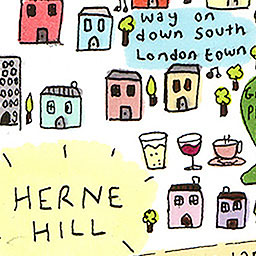 way on
down South
London town
HERNE
HILL